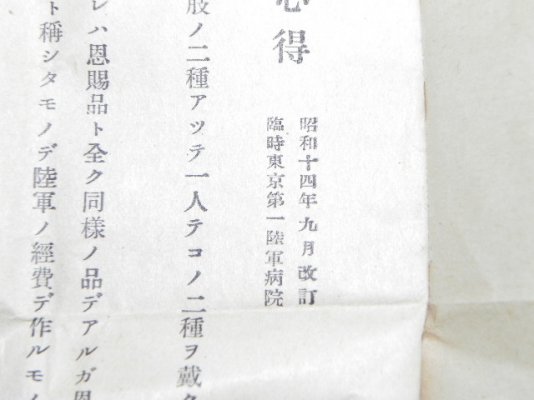 心得
昭和十四年九月改訂
臨時東京第一陸軍病院
肢ノ二種アツテ一人テコノ二種ヲ戴ク
レハ恩賜品ト全ク同様ノ品デアルガ恩
ト稱シタモノデ陸軍ノ經費デ作ルモノ